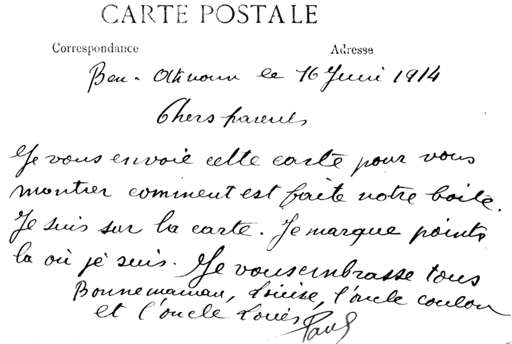 CARTE POSTALE
Correspondance Adresse
Ben-Aknoun le 16 Juin 1914
Chers parents
Je vous envoie cette carte pour vous
montrer comment est faite notre boite.
Je suis sur la carte. Je marque points
la où je suis. Je vous embrasse tous
Bonnemaman, Louise, l'oncle coulon
et l'oncle Louis, Paul